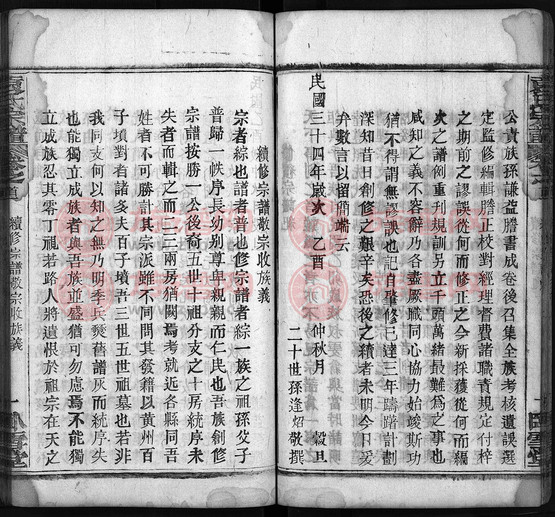 公責族孫謙益謄書成卷後召集全族考核遺誤選
定監修編輯謄正校對經理督費諸職責規定付梓
之期前之謬誤從何而修正之今新採獲從何而編
次之譜例重刊規訓另立千頭萬緒最難爲之事也
咸知之義不容辭乃各盡厥職同心協力始竣斯功
猶不得謂無謬誤也記自肇修已達三年疇躇計劃
深知昔日創修之艱辛矣恐後之續者未明今日爰
弁數言以留簡端云
民國三十四年歲次乙酉 仲秋月 穀旦
二十世孫逢炤敬撰
續修宗譜敬宗收族義
宗者綜也譜者普也修宗譜者綜一族之祖孫父子
普歸一帙序長幼別尊卑親親而仁民也吾族創修
宗譜按勝一公後裔五世十祖分支之十房統序未
失者而輯之而二三兩房猶闕焉考就近各縣同吾
姓者不可勝計其宗派雖不同問其發籍以黃州百
子墳對者諸多夫百子墳吾三世五世祖墓也若非
我同支何以知之無乃明季兵燹舊譜灰而統序失
也能獨立成族者與吾族並盛猶可勿慮焉不能獨
立成族忍其零丁祖若路人將遺恨於祖宗在天之
續修宗譜敬宗收族義
一